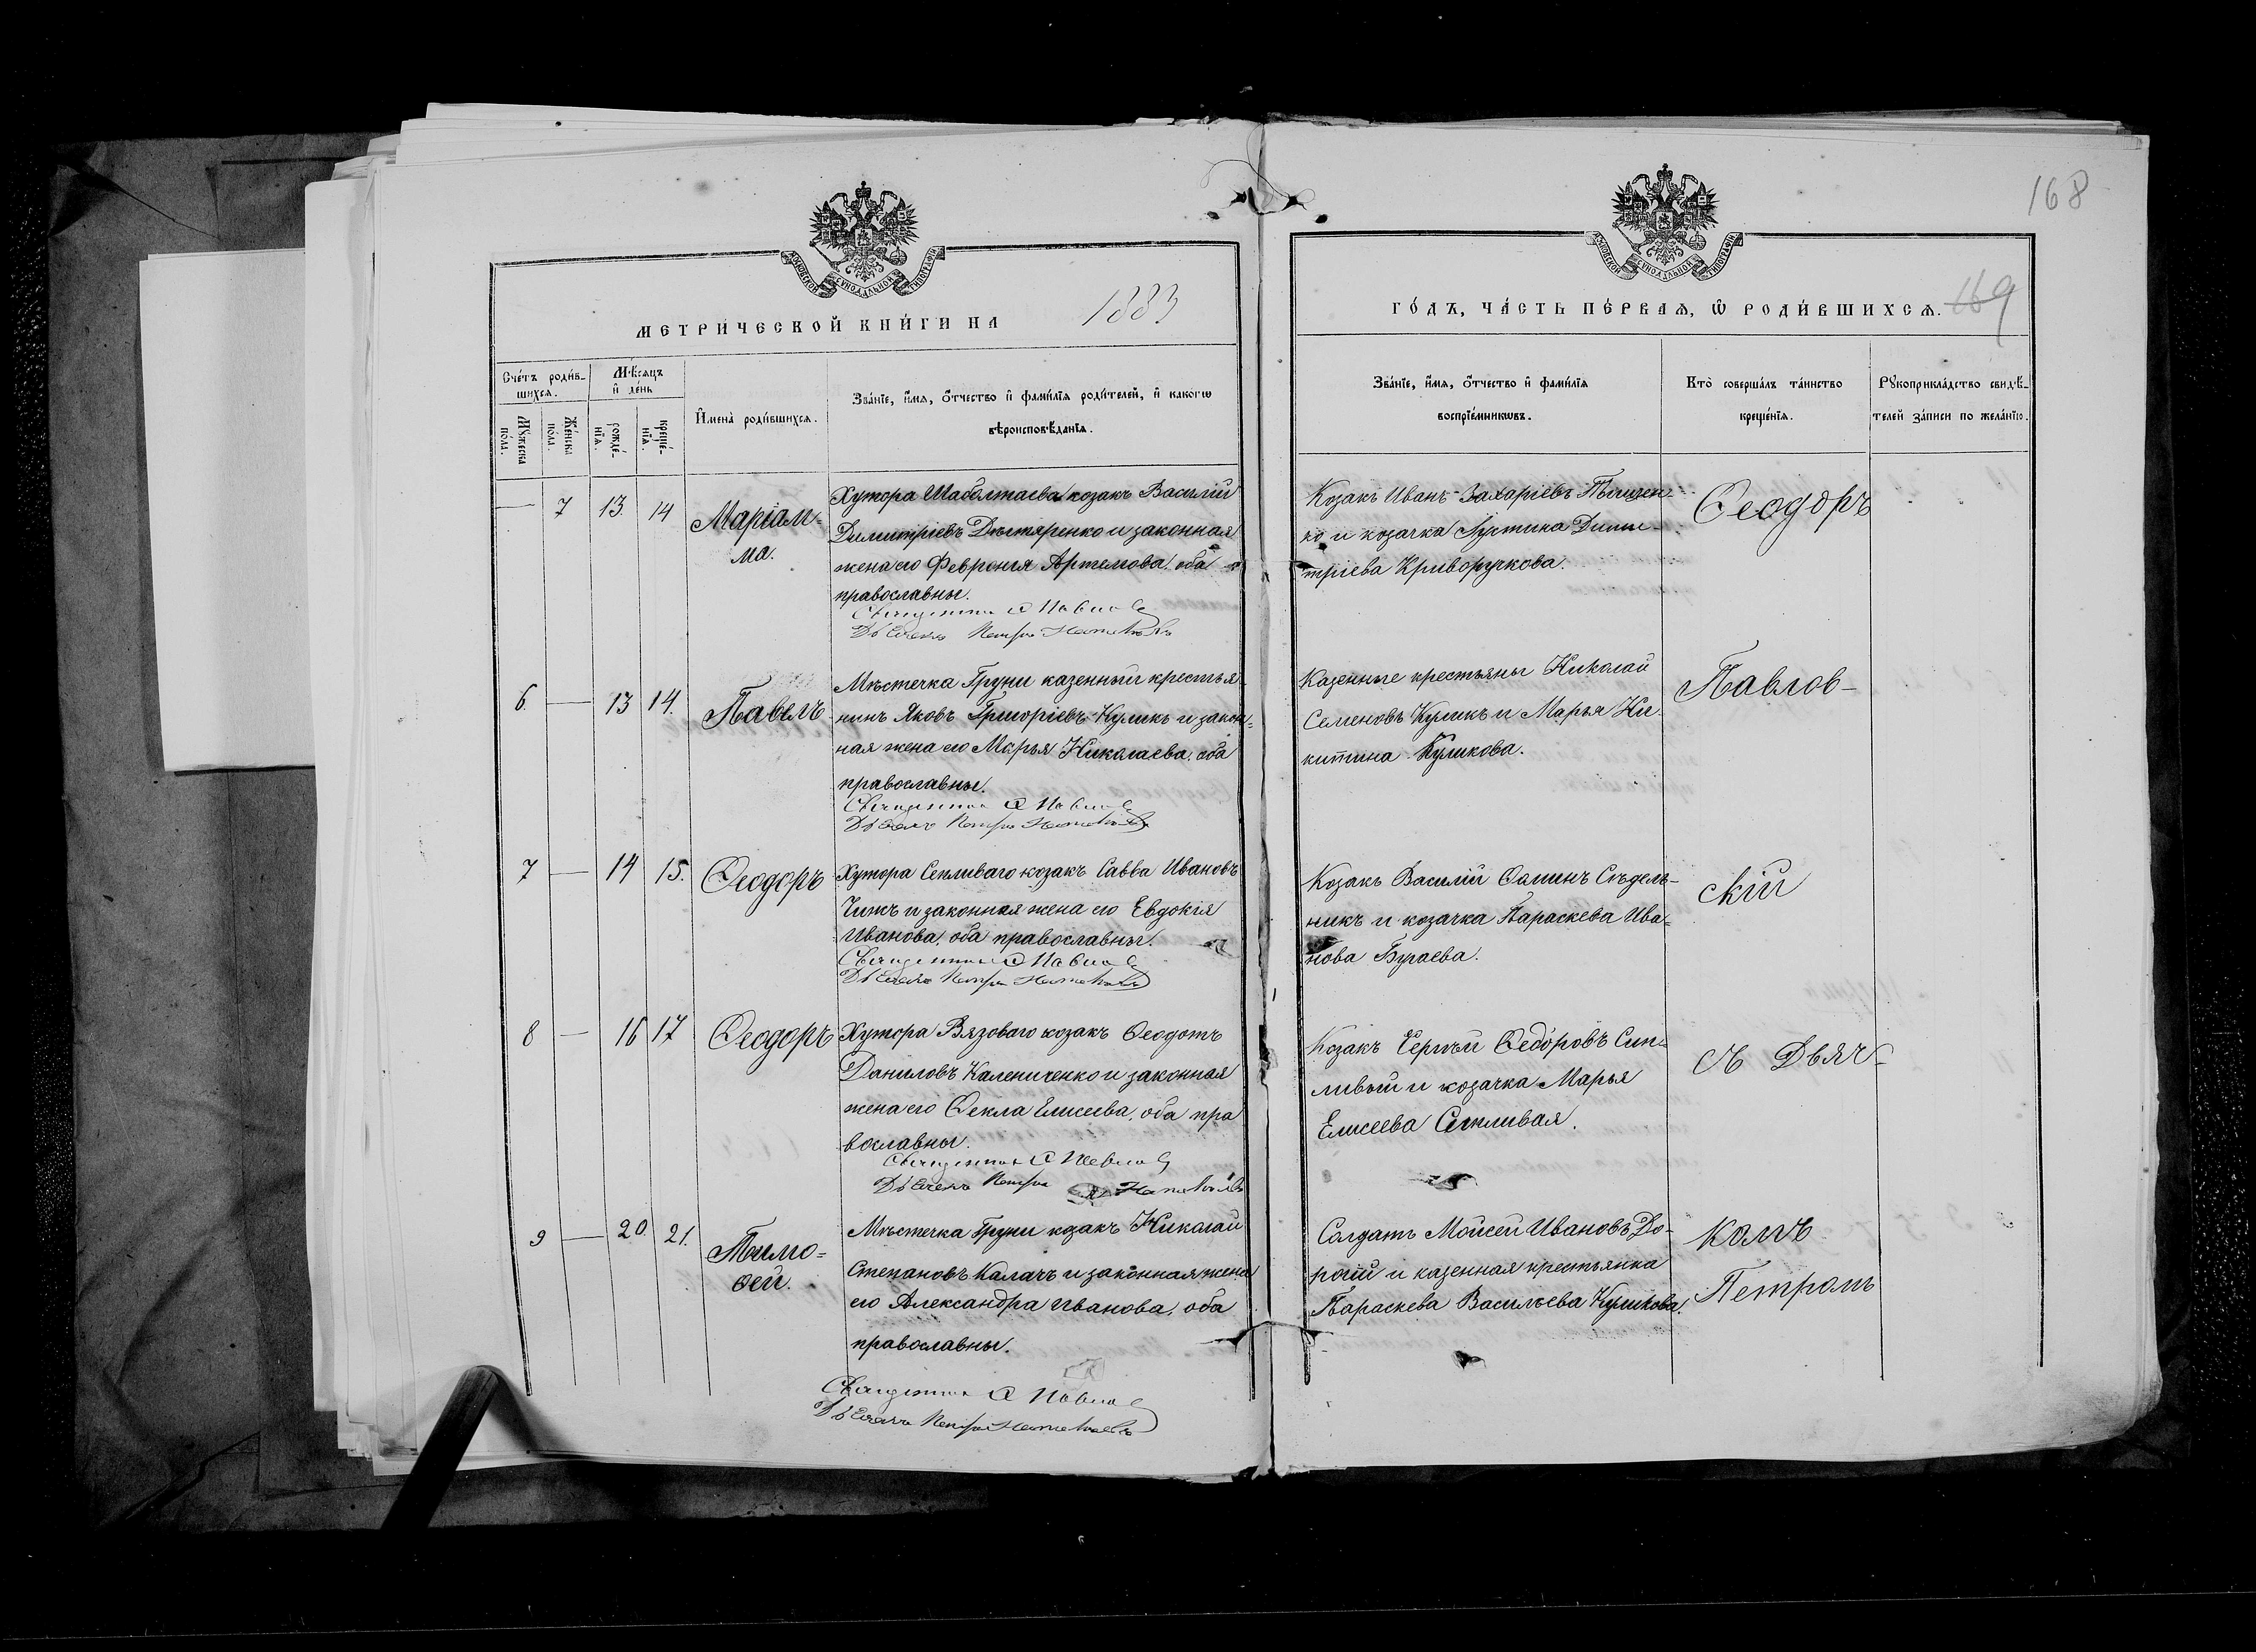 168
МЕТРИЧЕСКОЙ КНИ́ГИ НА 1883
ГО́ДЪ, ЧА́СТЬ ПЕ́РВАѦ, Ѽ РОДИ́ВШИХСѦ. 169
Сче́тъ роди́в-
шихсѧ.
Мꙋ́жеска по́ла.
Же́нска по́ла.
Мѣ́сѧцъ
и҆ де́нь
рожде́-
нїѧ.
креще́-
нїѧ.
И҆мена̀ роди́вшихсѧ.
Зва́нїе, и҆́мѧ, ѻ҆́тчество и҆ фами́лїѧ роди́телей, и҆ какогѡ
вѣроисповѣ́данїѧ.
Зва́нїе, и҆́мѧ, ѻ҆́тчество и҆ фами́лїѧ
воспрїе́мникѡвъ.
Кто̀ соверша́лъ та́инство
креще́нїѧ.
Рꙋкоприкла́дство свидѣ́-
телей за́писи по жела́нїю.
— 7 13. 14 Маріам-
на.
Хутора Шаболтаева козакъ Василій
Димитріевъ Дегтяренко и законная
жена его Февронія Артемова, оба
православны.
Священникъ Ѳ Павлов
Дьячекъ Петръ
Козакъ Иванъ Захаріевъ Тимчен-
ко и козачка Іустина Дими-
тріева Криворучкова.
Ѳеодоръ
6. — 13 14. Павелъ
Мѣстечка Груни казенный крестья-
нинъ Яковъ Григоріевъ Куликъ и закон-
ная жена его Марья Николаева, оба
православны.
Священникъ Ѳ Павлов
Дьячекъ Петръ
Казенные крестьяны Николай
Семеновъ Куликъ и Марья Ни-
китина Куликова.
Павлов-
7 — 14 15. Ѳеодоръ
Хутора Сипливаго козакъ Савва Ивановъ
Чижъ и законная жена его Евдокія
Иванова, оба православны.
Священникъ Ѳ Павлов
Дьячекъ Петръ
Козакъ Василій Ѳоминъ Съдель-
никъ и козачка Параскева Ива-
нова Бугаева.
скій
8 — 16 17 Ѳеодоръ
Хутора Вязоваго козакъ Ѳеодотъ
Даниловъ Калениченко и законная
жена его Ѳекла Елисеева, оба пра
вославны.
Священникъ Ѳ Павлов
Дьячекъ Петръ
Козакъ Сергѣй Ѳедоровъ Сип-
ливый и козачка Марья
Елисеева Сипливая.
съ Дьяч-
9 — 20. 21. Тимо-
ѳей.
Мѣстечка Груни козакъ Николай
Степановъ Калачъ и законная жена
его Александра Иванова, оба
православны.
Священникъ Ѳ Павлов
Дьячекъ Петръ
Солдатъ Мойсей Ивановъ До-
рогій и казенная крестьянка
Параскева Васильева Куликова.
комъ
Петромъ